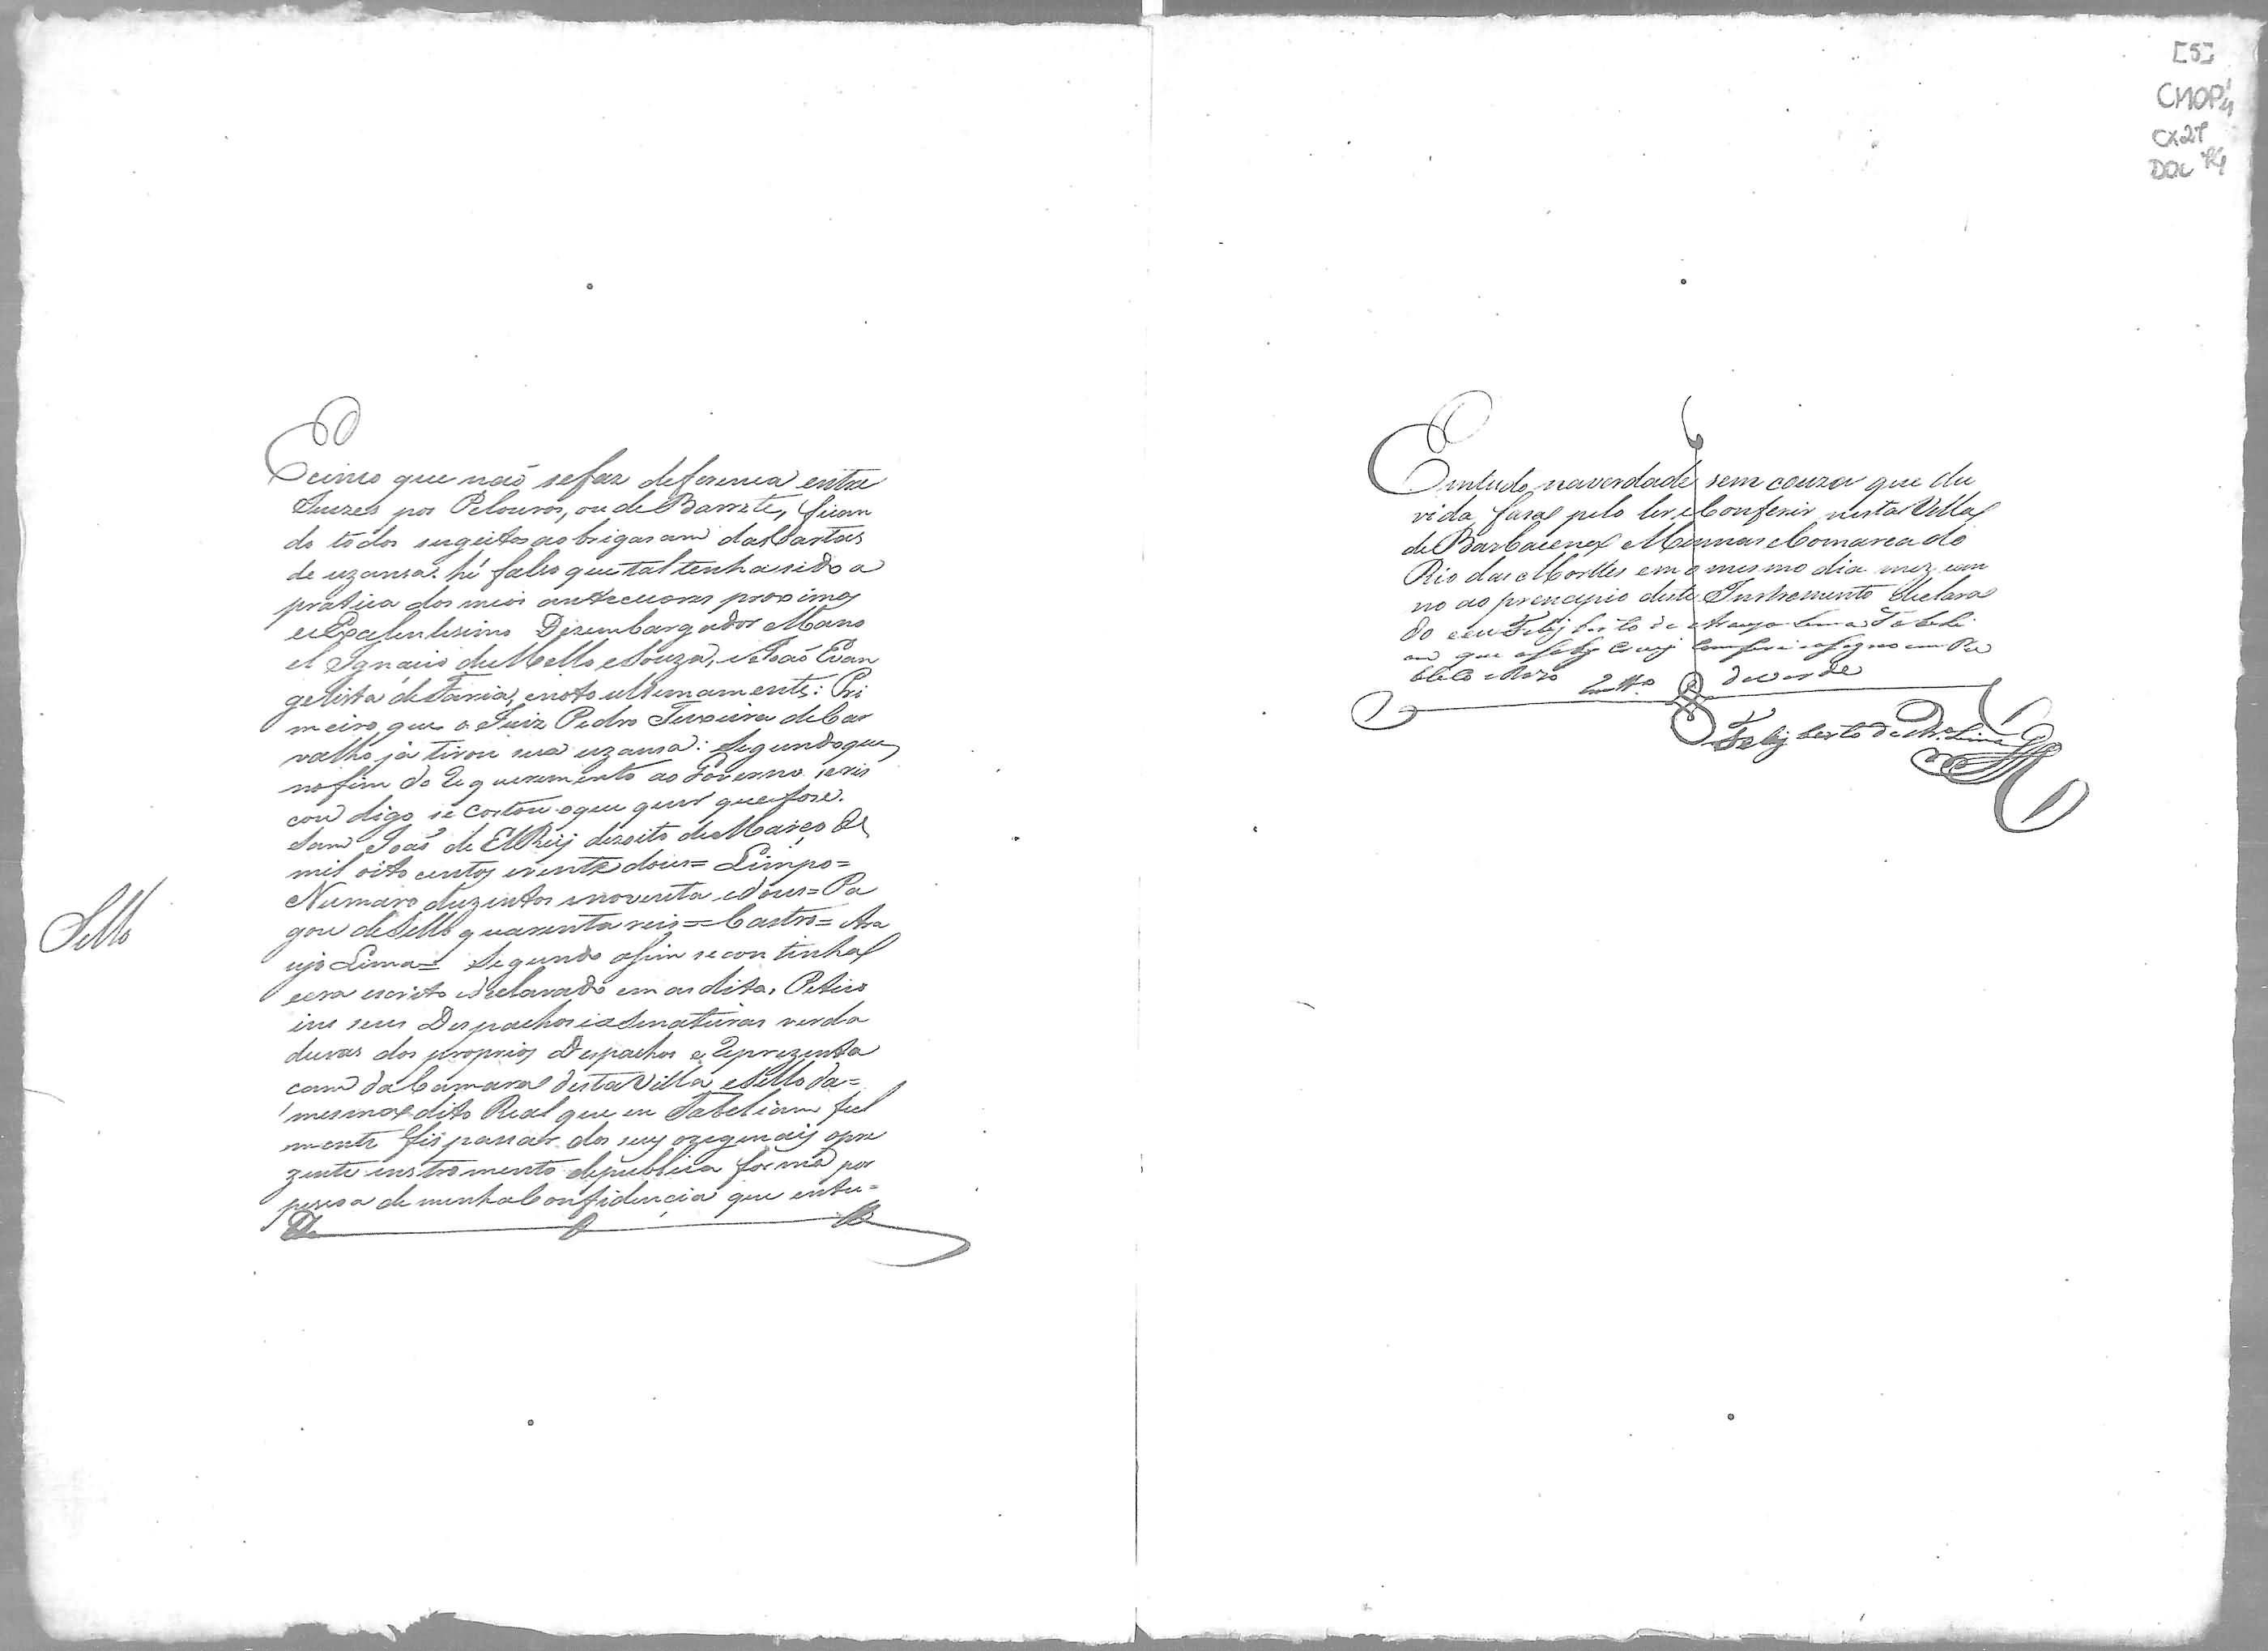 E cinco que naõ sefaz deferenca entre
Juezes por Pelouros, ou de Barrete, fican
do tôdos sugeitos aobrigasam das Cartas
de uzansa: hé falso que tal tenha sido a
pratica dos meos antecesores proximos
o Excelentisimo Dezembargador Mano
el Ignacio de Mello e Souza, e Joaõ Evan
gelista de Faria, e noto ultimamente: Pri
meiro, que o Juiz Pedro Teixeira de Car
valho, já tirou sua uzansa: Segundo que
no fim do Requerimento ao Governo, se ris
cou digo se cortou o que quer que fose.
Sam Joaõ de ElRey dezoito de Março de
mil oito centos evente dous= Limpo=
Numaro duzentos e noventa e dous= Pa
gou de Sello quarenta reis= Castro= Ara
ujo Lima= Segundo asim se continha
e era escrito e declarado em as dita, Petico
ins seus Despachos e asinaturas verda
deiras dos proprios Despachos e Reprezenta
cam da Camara desta Villa, e Sello da=
mesma e dito Real que eu Tabeliam fiel
mente fis passar dos seus origenais o pre
zente instromento de publica forma por
pesoa de minha Confidencia que entu=
Sello
[5]
CMOP
CX 27
DOC 74
Emtudo na verdade sem couza que du
vida fasa pelo ler e Conferir nesta Villa
de Barbacena Minnas e Comarca do
Rio das Morttes em o mesmo dia mez e an
no ao principio deste Instromento declara
do e eu Felisberto de Araujo Lima Tabeli
am que a sobs crevy comferi e asigno em Pu
blico e Razo
Em tt.º de verde
Felisberto de Ar.º Lima